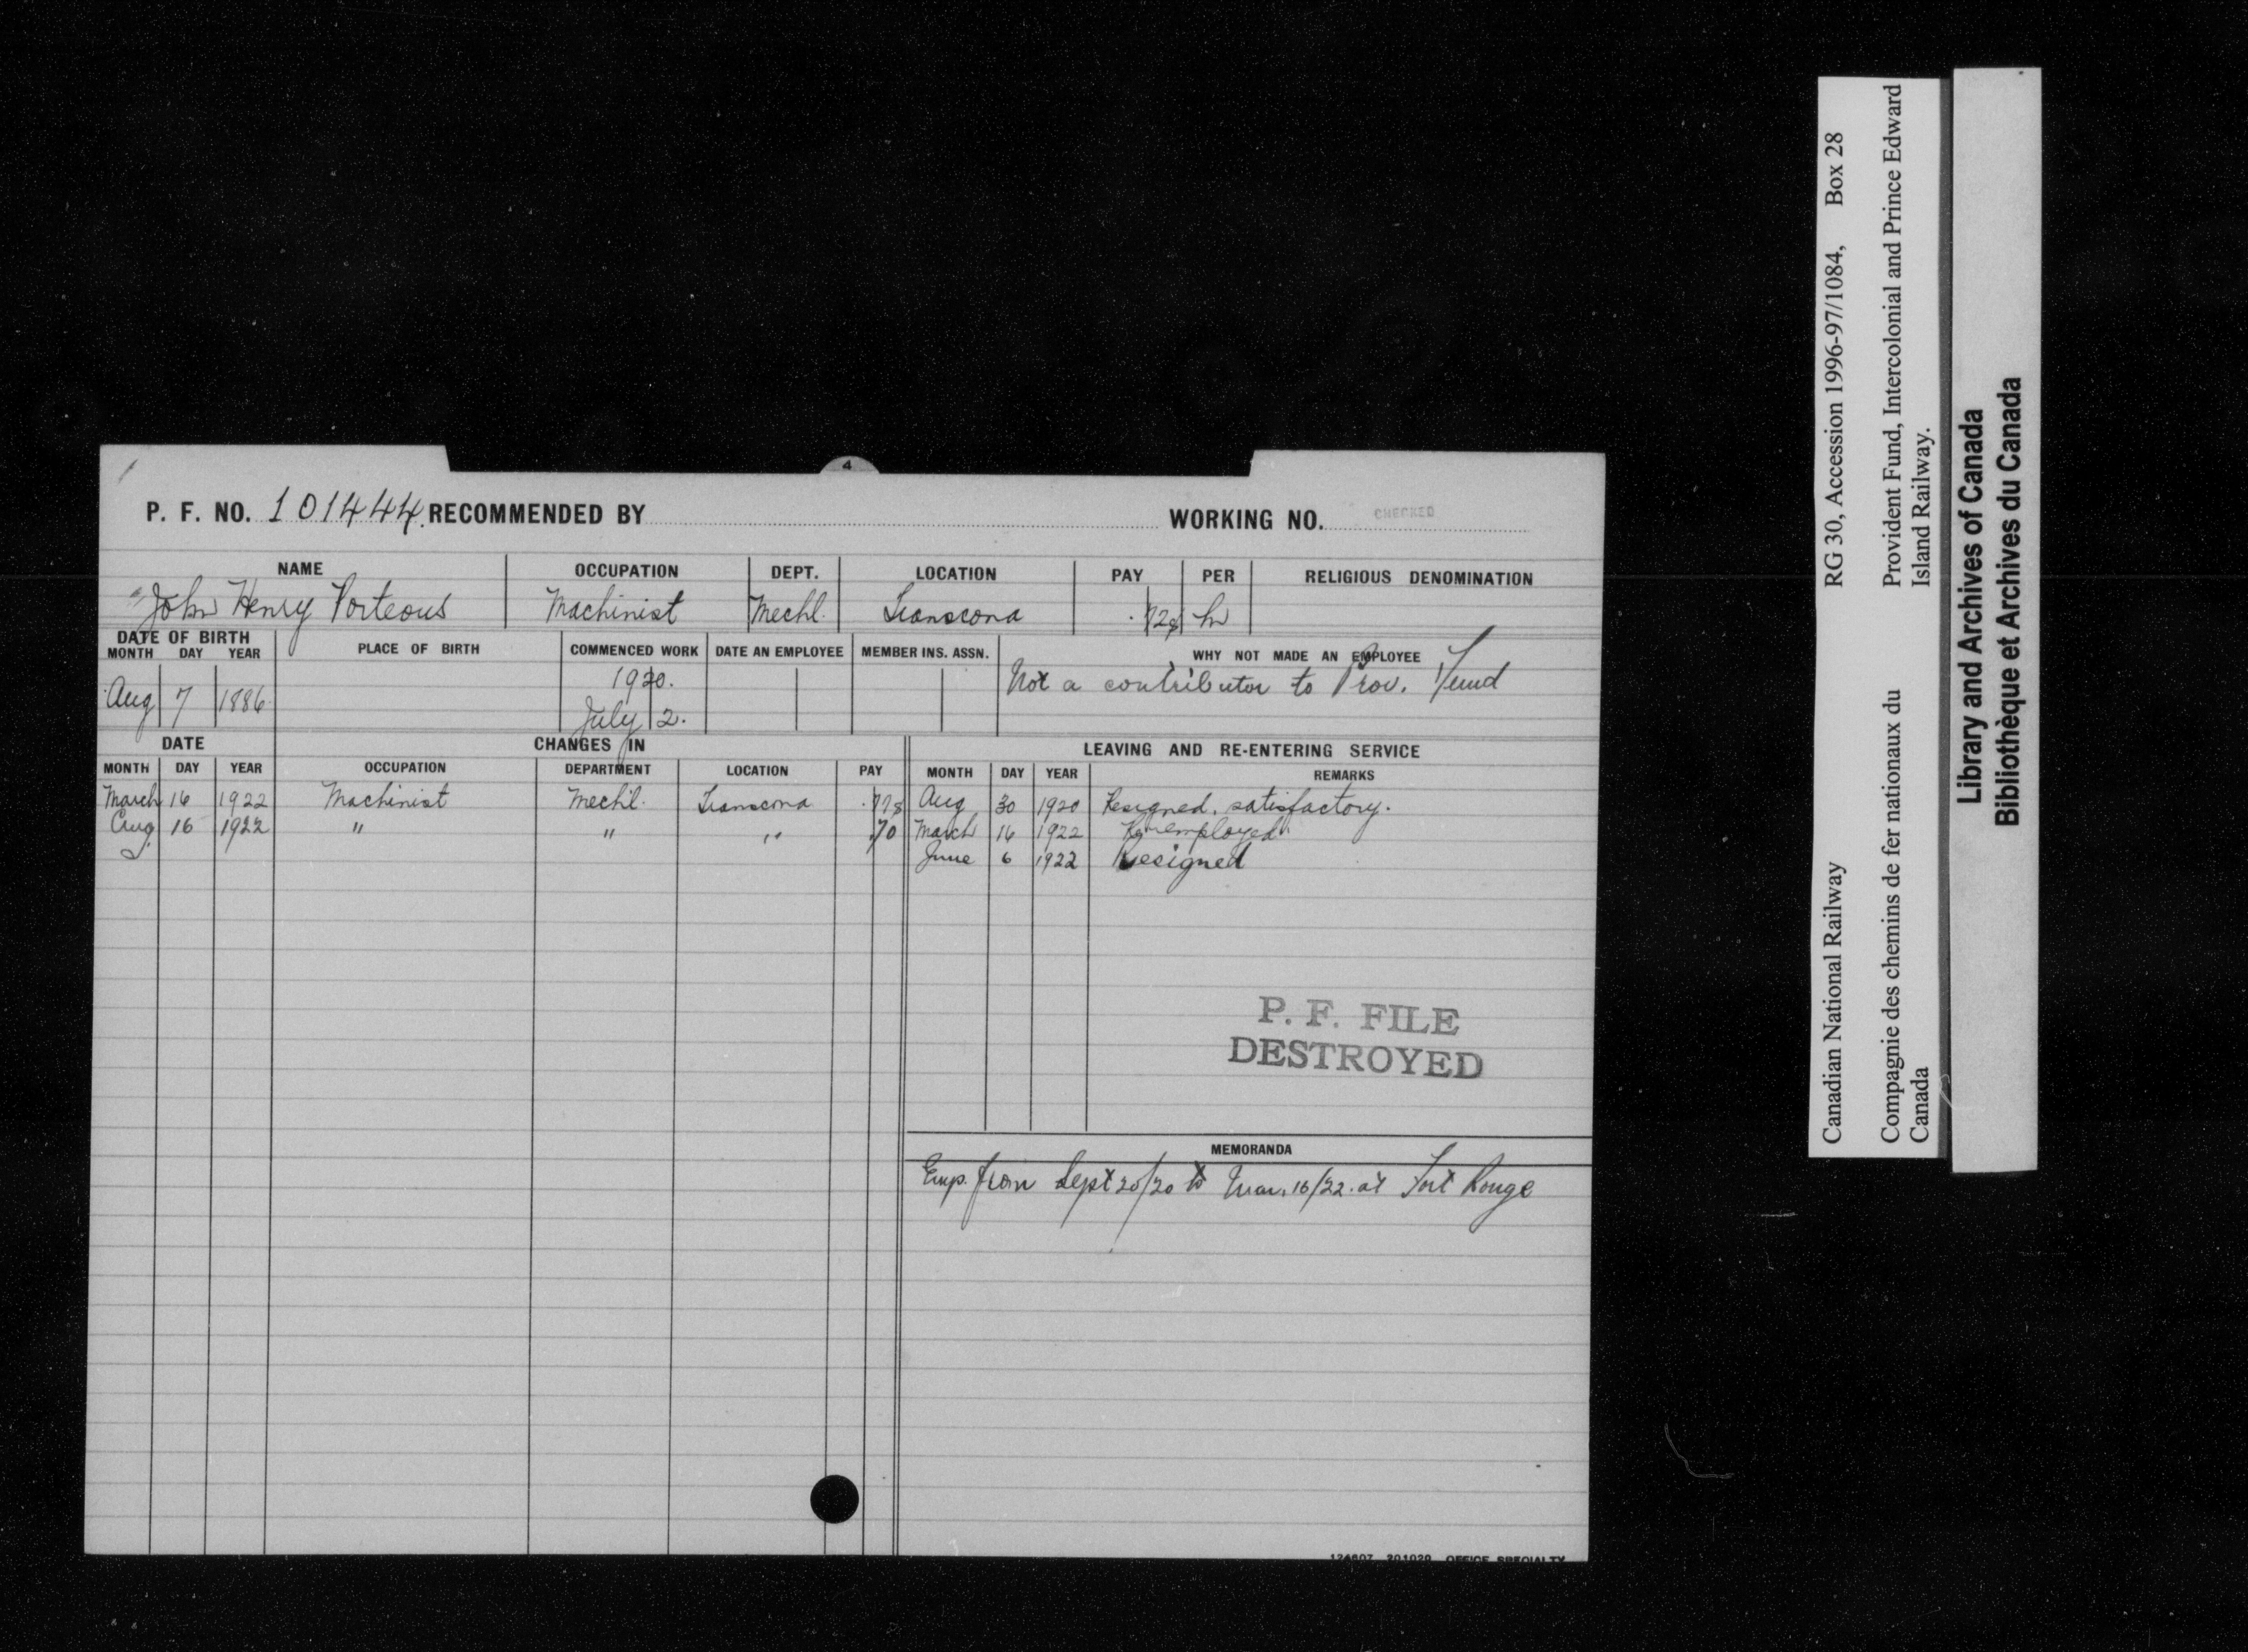 4
P. F. NO. 101444. RECOMMENDED BY WORKING NO. CHECKED
NAME OCCUPATION DEPT. LOCATION PAY PER RELIGIOUS DENOMINATION
John Henry Porteous Machinist Mechl. Transcona .72 hr
DATE OF BIRTH
MONTH DAY YEAR PLACE OF BIRTH COMMENCED WORK DATE AN EMPLOYEE MEMBER INS. ASSN. WHY NOT MADE AN EMPLOYEE
Aug 7 1886 1920. Not a contributor to Prov. Fund
July 2.
DATE CHANGES IN LEAVING AND RE-ENTERING SERVICE
MONTH DAY YEAR OCCUPATION DEPARTMENT LOCATION PAY MONTH DAY YEAR REMARKS
March 16 1922 Machinist Mech'l. Transcona Aug 30 1920 Resigned, satisfactory.
Aug. 16 1922 " " " .70 March 16 1922 Re-employed
June 6 1922 Resigned
P. F. FILE
DESTROYED
MEMORANDA
Emp. from Sept 20/20 to Mar. 16/22. at Fort Rouge
OFFICE SPECIALTY
Canadian National Railway RG 30, Accession 1996-97/1084, Box 28
Compagnie des chemins de fer nationaux du Provident Fund, Intercolonial and Prince Edward
Canada Island Railway.
Library and Archives of Canada
Bibliothèque et Archives du Canada